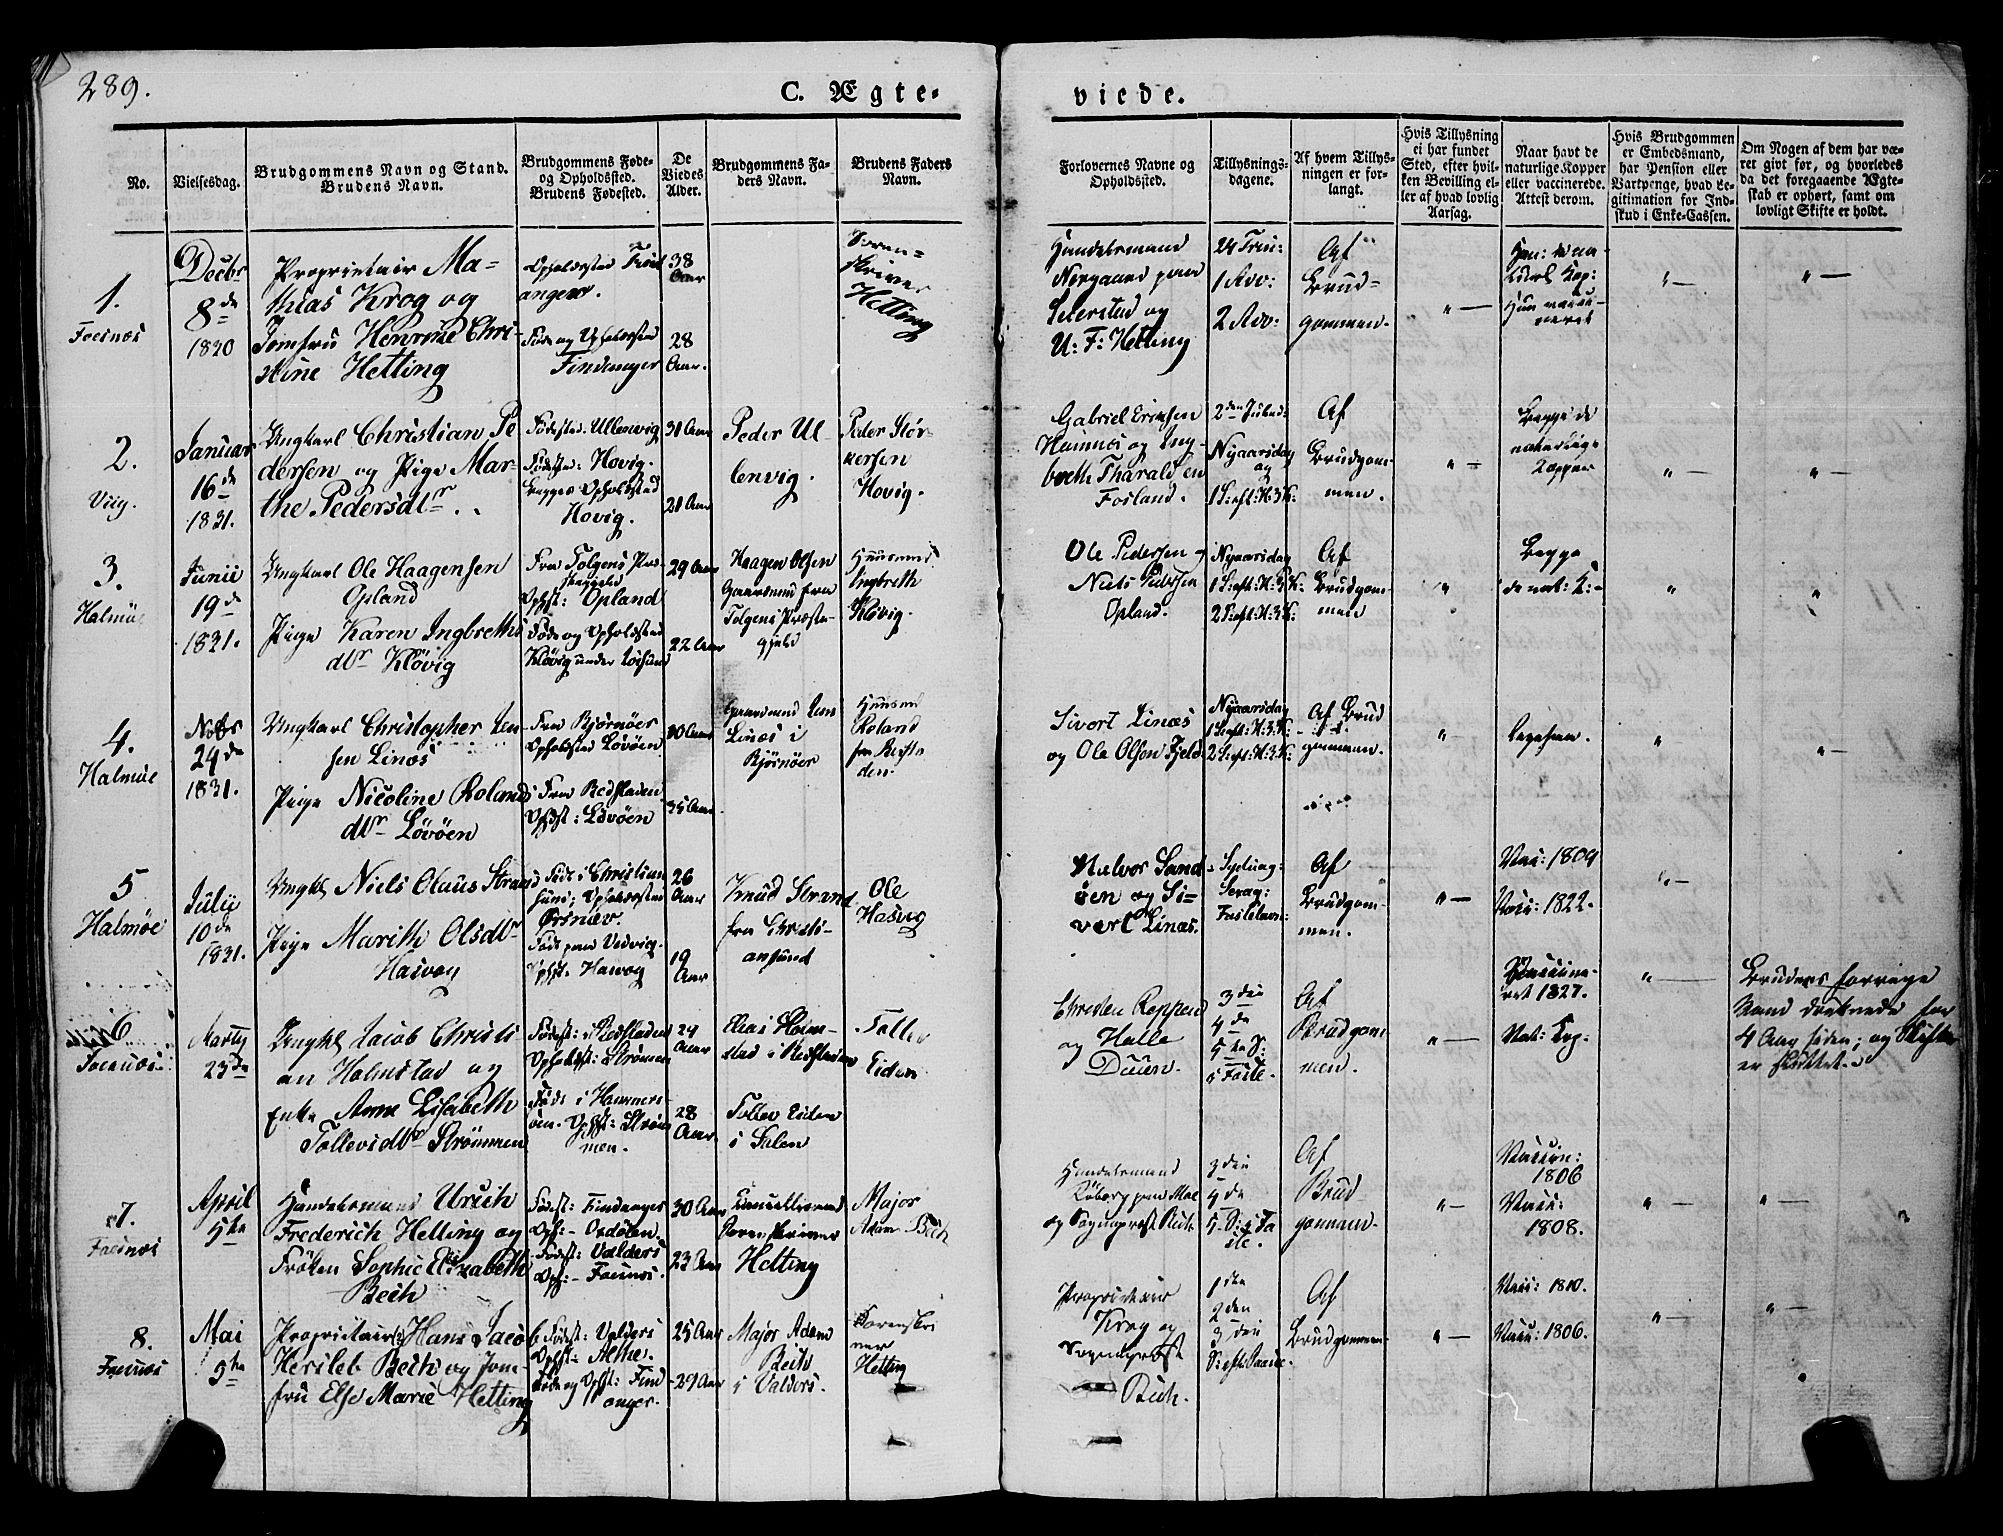 289.
C. Ægte-
viede.
No.
Vielsesdag.
Brudgommens Navn og Stand.
Brudens Navn.
Brudgommens Føde-
og Opholdssted.
Brudens Fødested.
De
Viedes
Alder.
Brudgommens Fa-
ders Navn.
Brudens Faders
Navn.
Forlovernes Navne og
Opholdssted.
Tillysnings-
dagene.
Af hvem Tillys-
ningen er for-
langt.
Hvis Tillysning
ei har fundet
Sted, efter hvil-
ken Bevilling el-
ler af hvad lovlig
Aarsag.
Naar havt de
naturlige Kopper
eller vaccinerede.
Attest derom.
Hvis Brudgommen
er Embedsmand,
har Pension eller
Vartpenge, hvad Le-
gitimation for Ind-
skud i Enke-Cassen.
Om Nogen af dem har væ-
ret givt før, og hvorledes
da det foregaaende Ægte-
skab er ophørt, samt om
lovligt Skifte er holdt.
1.
Foesnæs
Decbr
8de
1830
Proprietair Ma-
thias Krog og
Jomfru Henrine Chri-
stine Hetting
Opholdssted Find
anger.
Føde og Opholdssted
Findanger
38
Aar
28
Aar.
Soren-
skriver
Hetting
Handelsmand
Norgaard paa
Seierstad og
U: F: Hetting
24 Trin:
1 Adv:
2 Adv:
Af
Brud-
gommen
Han: de na-
turl. Kop:
Hun vacci-
neret
2.
Viig.
Januar
16de
1831.
Ungkarl Christian Pe
dersen og Pige Mar-
the Pedersdtr
Fødested: Ullenvig
Fødested: Hovig.
Begges Opholdssted
Hovig.
31 Aar
21 Aar
Peder Ul
lenvig.
Peder Stør-
kersen
Hovig.
Gabriel Ericksen
og Ing-
breth Tharaldsen
Fosland.
2den Juledag
Nyaarsdag
og
1 S: eft: H: 3 K:
Af
Brudgom-
men.
Begge de
naturlige
Kopper
3.
Halmøe
Junii
19de
1831.
Ungkarl Ole Haagensen
Opland
Pige Karen Ingbreths
dtr Kløvig
Fra Tolgens Præ-
stegjeld
Ophst: Opland
Føde og Opholdssted
Kløvig under
29 Aar
22 Aar
Haagen Olsen
Gaardmand fra
Tolgens Præste-
gjeld
Huusmand
Ingbreth
Kløvig.
Ole Pedersen og
Niels Pedersen
Opland.
Nyaarsdag
1 S: eft: H: 3 K:
2 S: eft: H: 3 K:
Af
Brudgom-
men
Begge
de nat: K:
4.
Halmøe
Novbr
24de
1831.
Ungkarl Christopher Jen
sen Linæs
Pige Nicoline Rolands
dtr Løvøen
Fra Bjørnøer
Opholdssted Løvøen
Fra Beitstaden
Ophst: Løvøen
30 Aar
35 Aar
Gaardmand Jens
Linæs i
Bjørnøer
Huusmd
Roland
fra Beitsta
den.
Sivert Linæs
og Ole Olsen Fjeld
Nyaarsdag
1 S: eft: H: 3 K:
2 S: eft: H: 3 K:
Af Brud
gommen.
5
Halmøe
Julii
10de
1831.
Ungkl Niels Olaus Strand
Pige Marith Olsdtr
Hasvog
Født i Christian
sund; Opholdssted
Ørsnæs
Født paa Vedvig.
Ophst. Hasvog
26
Aar
19
Aar
Knud Strand
fra Christi-
ansund
Ole
Hasvog
Halvor Sand
øen og Si-
vert Linæs.
Septuag:
Sexag:
Fastelavn:
Af
Brudgom-
men.
Vac: 1809
Vacc: 1822.
6
Foesnæs
Martii
23de
Ungkl Jacob Christi
an Holmstad og
Enke Anne Elisabeth
Tollevsdtr Strømmen
Fødest: i Beitstaden
Opholdst: Strømen
Født i Hammers-
øen. Ophst: Strøm
men.
24
Aar
28
Aar.
Elias Holm-
stad i Beitstaden
Tollev Eiden
i Salen
Tollev
Eiden
Christen Reppen
og Halle
Duun.
3die
4de
5te S:
i Faste.
Af
Brudgom
men.
Vaccine-
ret 1827.
Nat: Kop.
Brudens forrige
Mand druknede for
4 Aar siden; og Skiftet
er sluttet.
7.
Foesnæs
April
5te
Handelsmand Ulrich
Frederich Hetting og
Frøken Sophie Elizabeth
Bech
Fødest: Findanger
Oph:
Fødest: Valders
Oph: Foesnæs.
30 Aar
23 Aar
Cancelliraad
Sorenskriver
Hetting
Major
Adam Bech
Handelsmand
og Sognprest Bech.
3die
4de
5 S: i Fa
ste.
Af
Brud
gommen.
Vaccin:
1806
Vacc:
1808.
8.
Foesnæs
Mai
9te
Proprietair Hans Jacob
Hersleb Bech og Jom-
fru Else Marie Hetting
Fødest: Valders
Ophst:
Føde og Ophst: Find
anger.
25 Aar
29 Aar
Major Adam
Bech
i Valders.
Sorenskri
ver
Hetting
Proprietair
Krog og
Sognprest
Bech.
1ste
2den
3die
S: eft: Paaske.
Af
Brudgommen
Vacc: 1810.
Vacc: 1806.